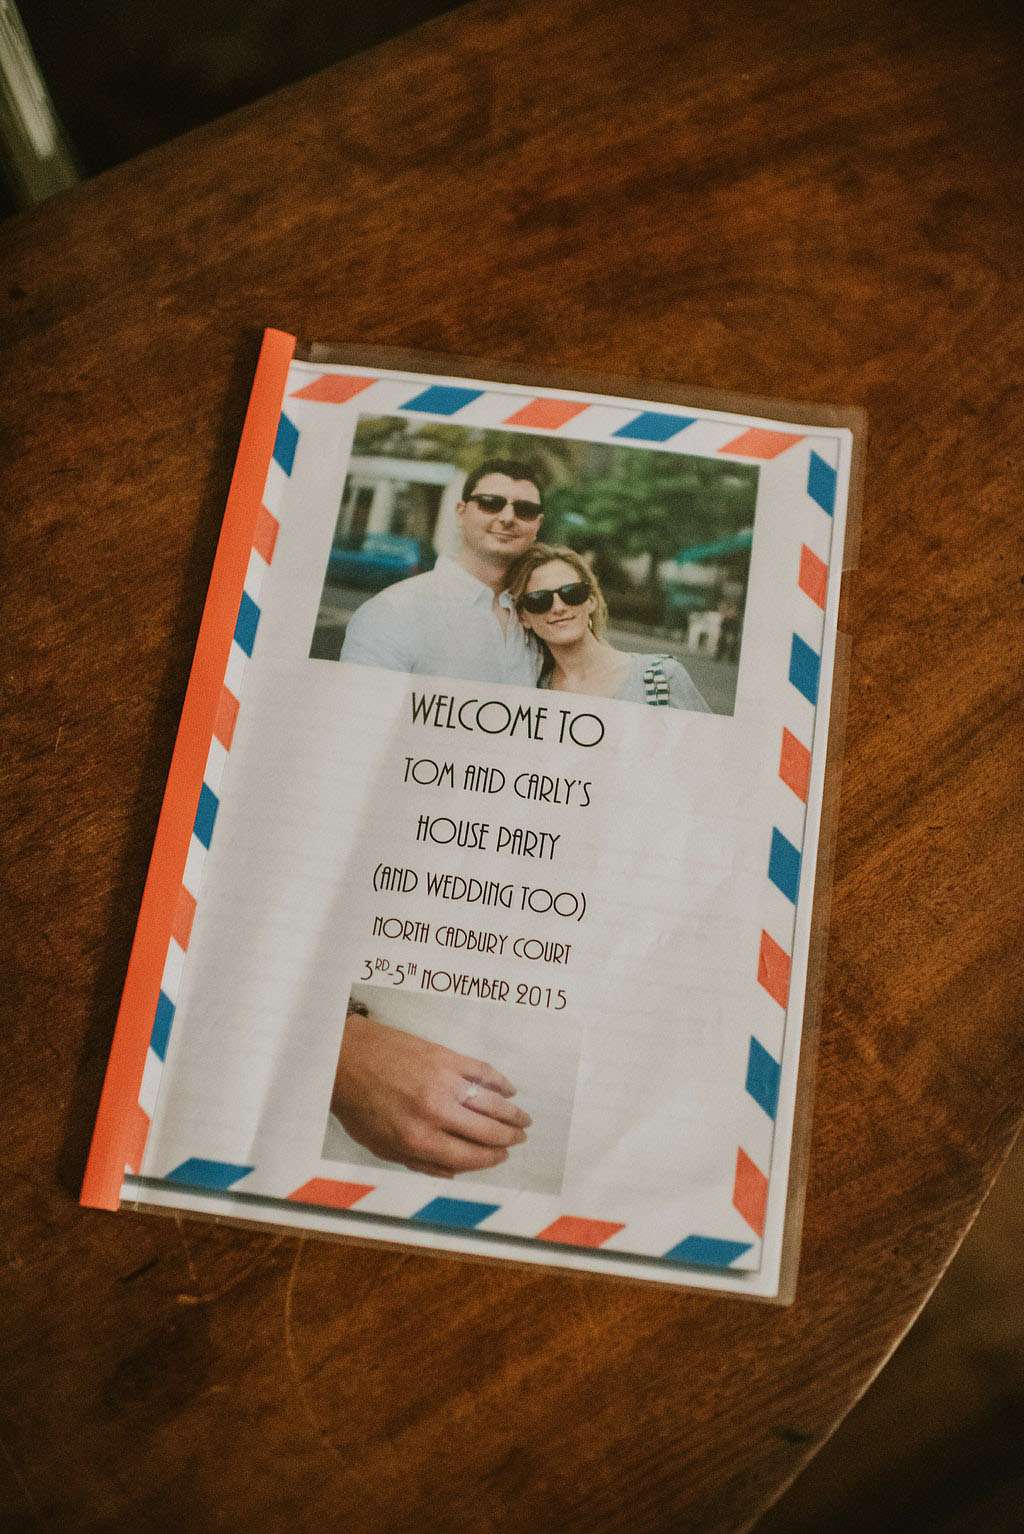 WELCOME TO
TOM AND CARLY'S
HOUSE PARTY
(AND WEDDING TOO)
NORTH CADBURY COURT
3RD-5TH NOVEMBER 2015